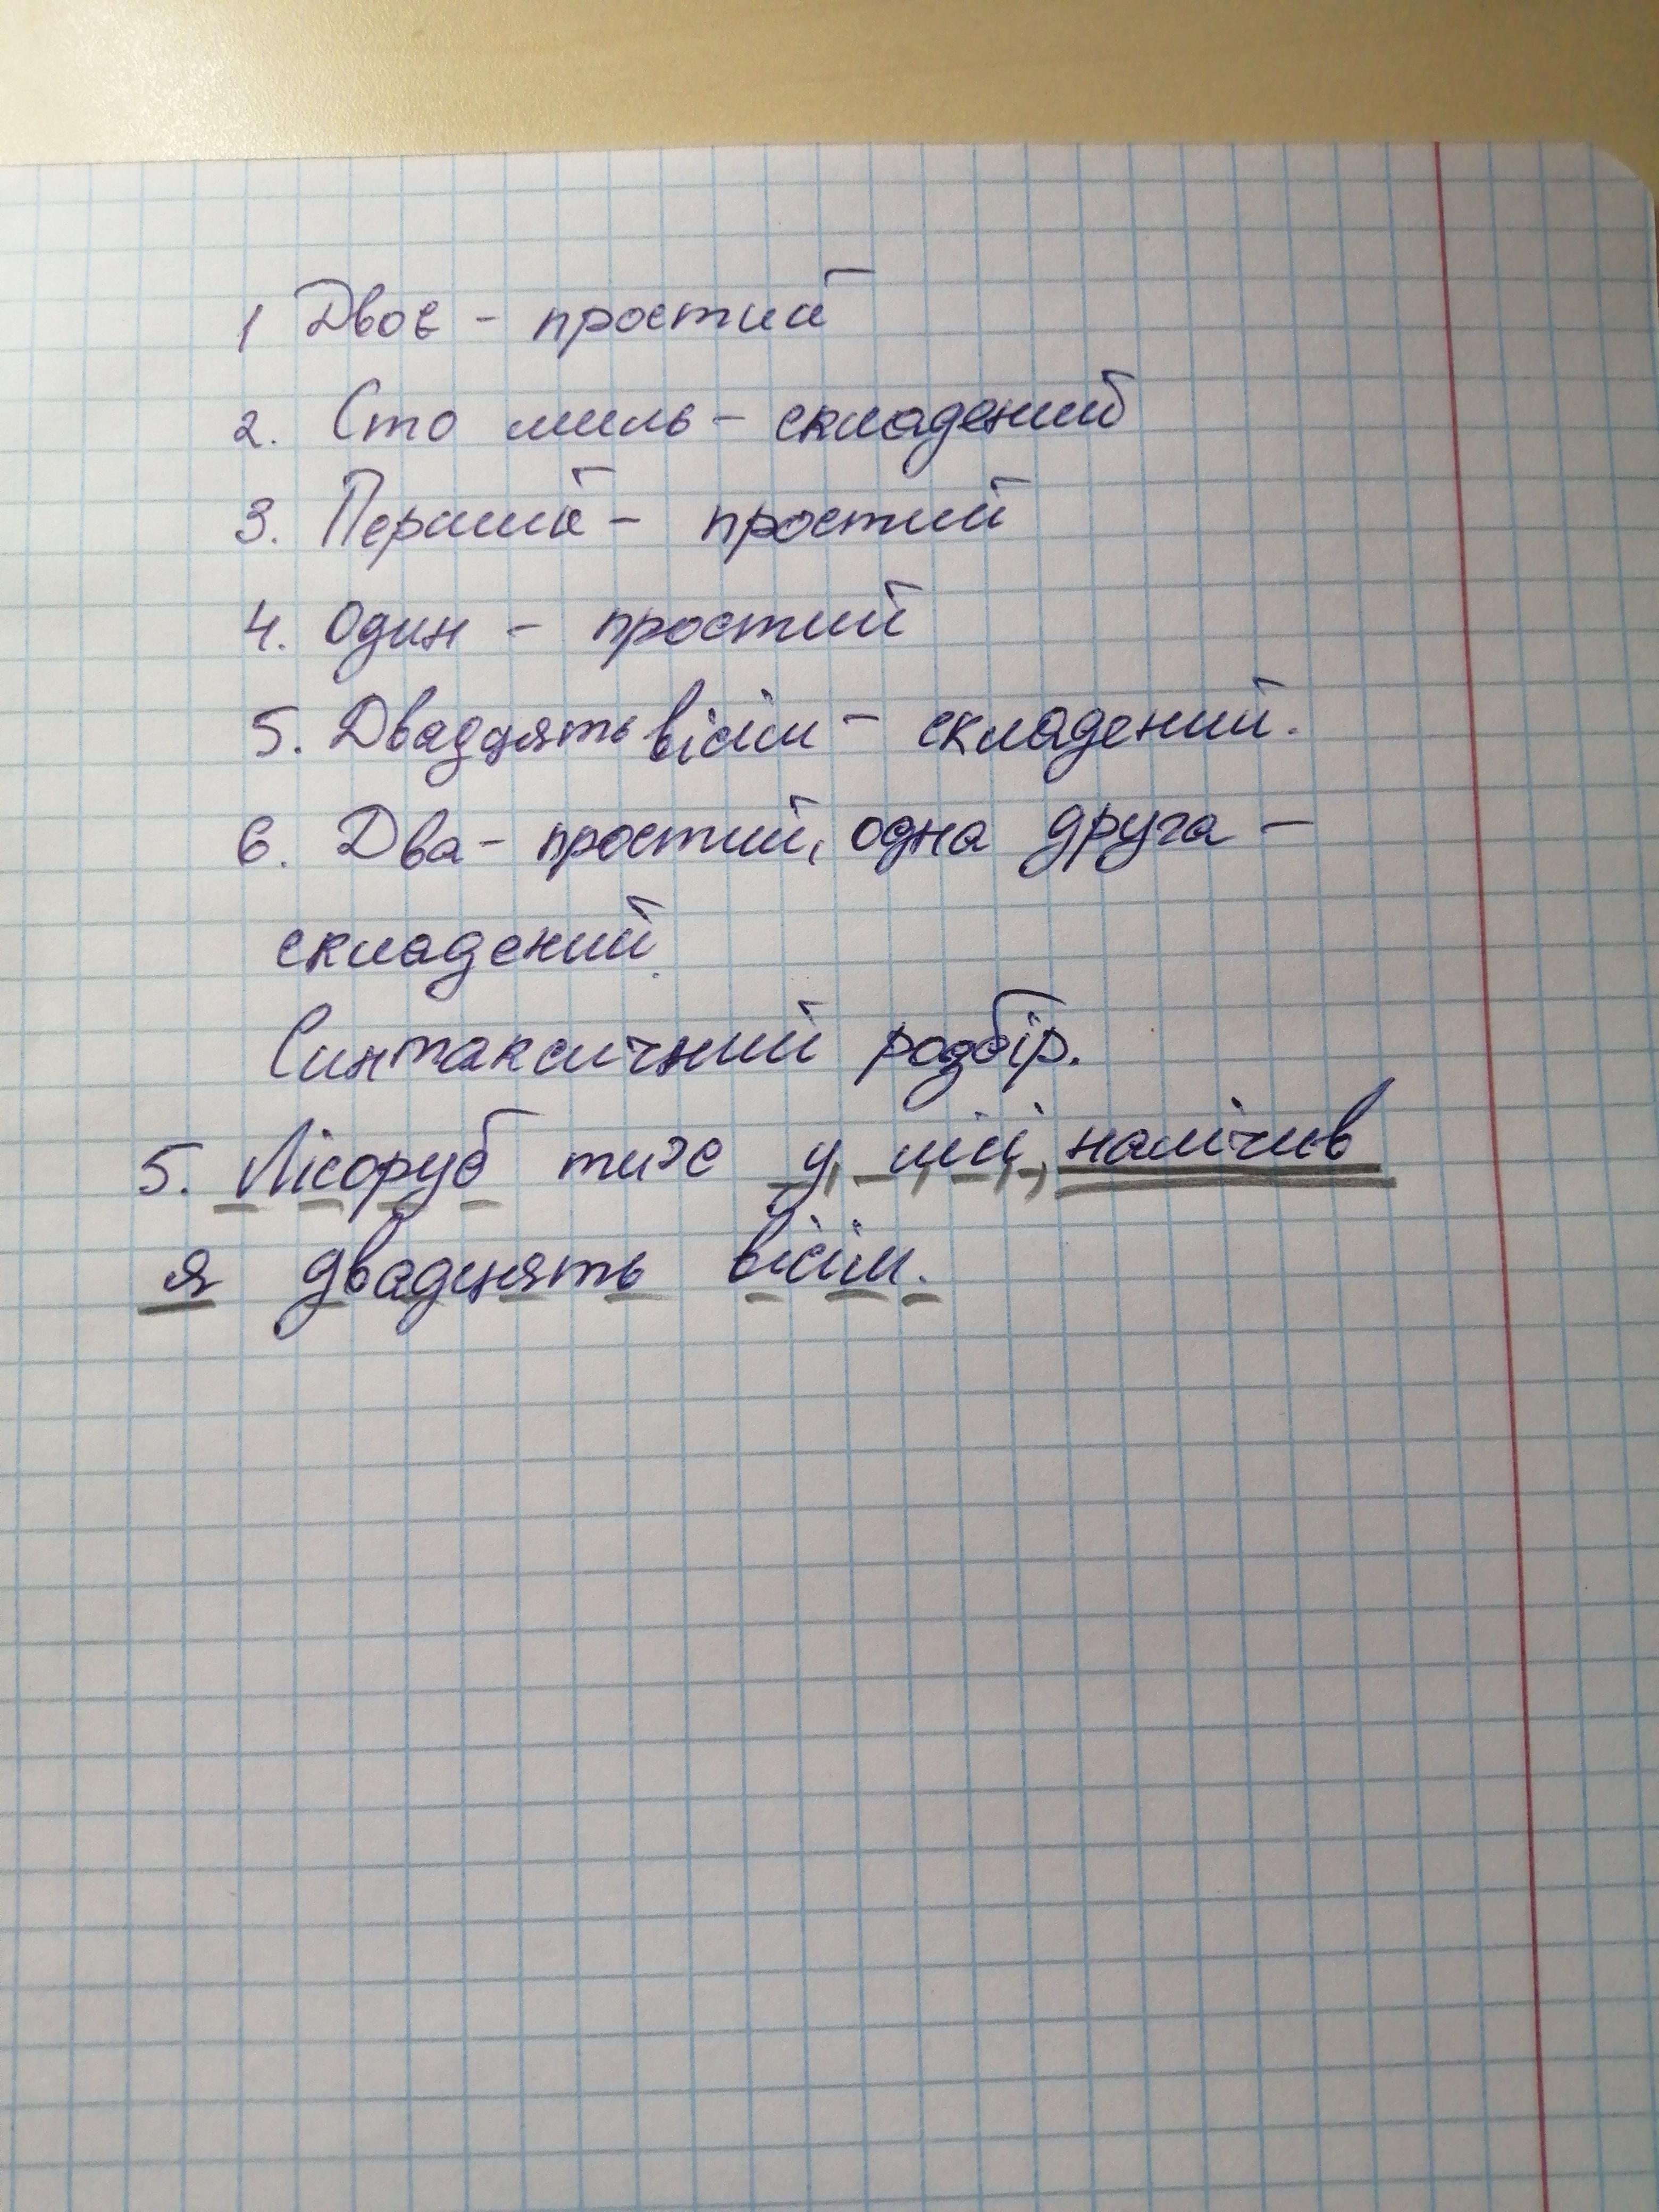 1 Двоє - простий
2. Сто миль - складений
3. Перший - простий
4. Один - простий
5. Двадцять вісім - складений.
6. Два - простий, одна друга -
складений.
Синтаксичний розбір.
5. Лісоруб у цій, налічив
я двадцять вісім.